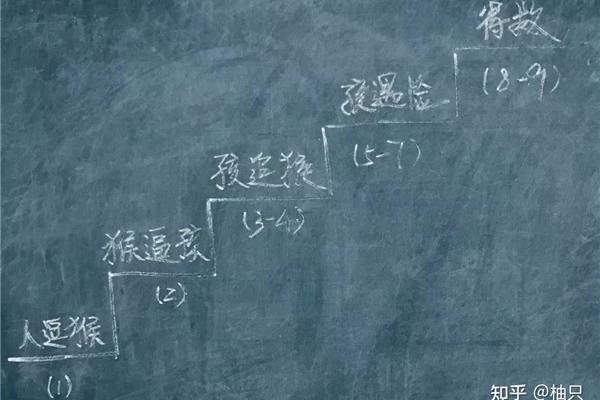 得救
(8-9)
孩遇险
(5-7)
孩追猴
(3-4)
猴逼孩
(2)
人逗猴
(1)
知乎 @柚只